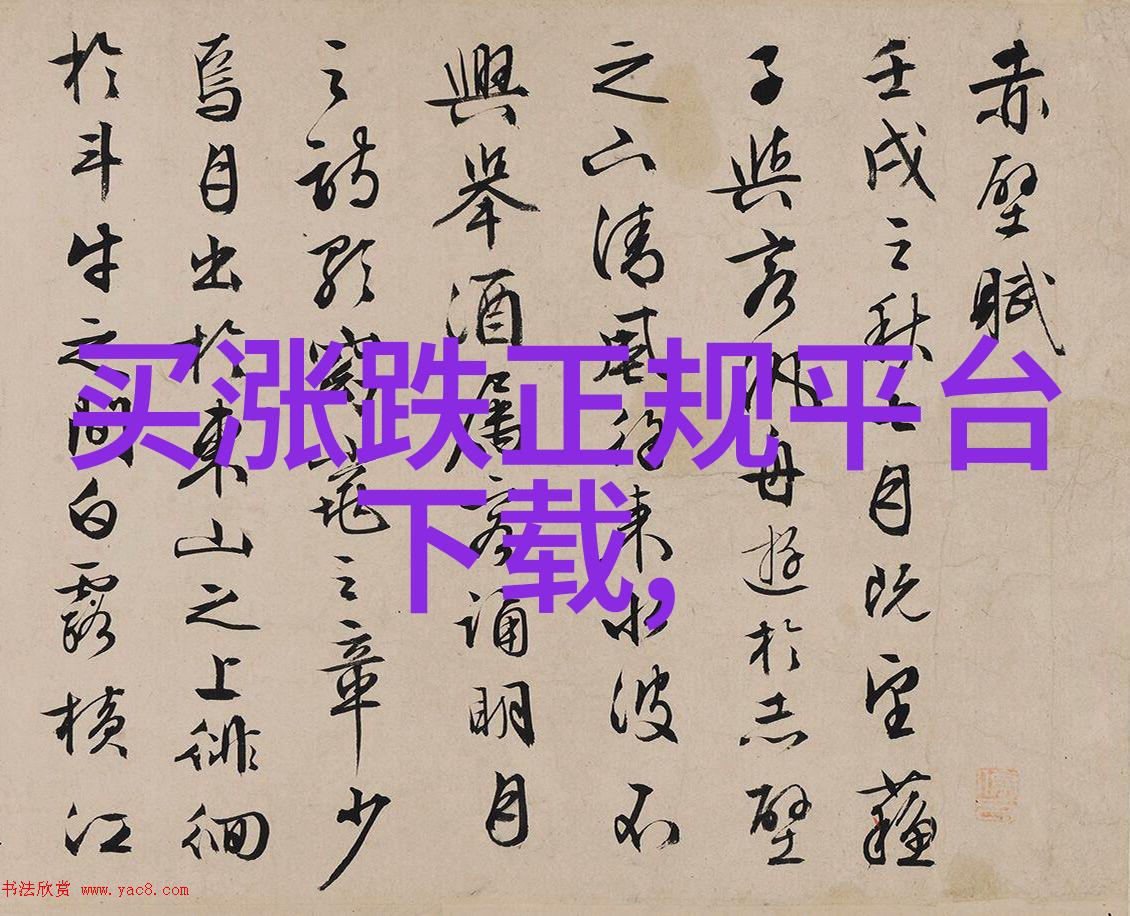 赤壁賦
壬戌之秋七月既望蘇
子與客汎舟遊於赤壁
之下清風徐來水波不
興舉酒屬客誦明月
之詩歌窈窕之章少
焉月出於東山之上徘徊
於斗牛之間白露橫江
买涨跌正规平台
下载,
书法欣赏 www.yac8.com